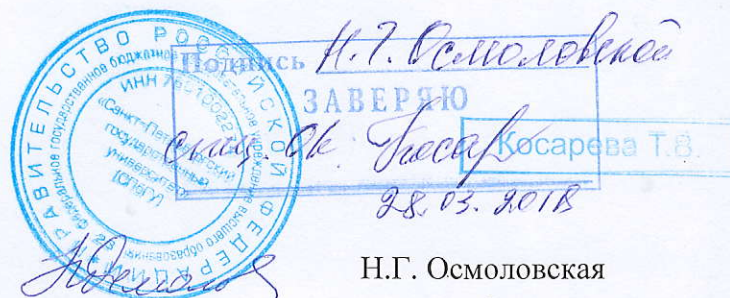 ПРАВИТЕЛЬСТВО РОССИЙСКОЙ ФЕДЕРАЦИИ
федеральное государственное бюджетное образовательное учреждение высшего образования
ИНН
«Санкт-Петербургский
государственный
университет»
(СПбГУ)
Подпись Н.Г. Осмоловской
ЗАВЕРЯЮ
спец. ОК Косар
Косарева Т.В.
28.03.2018
Н.Г. Осмоловская